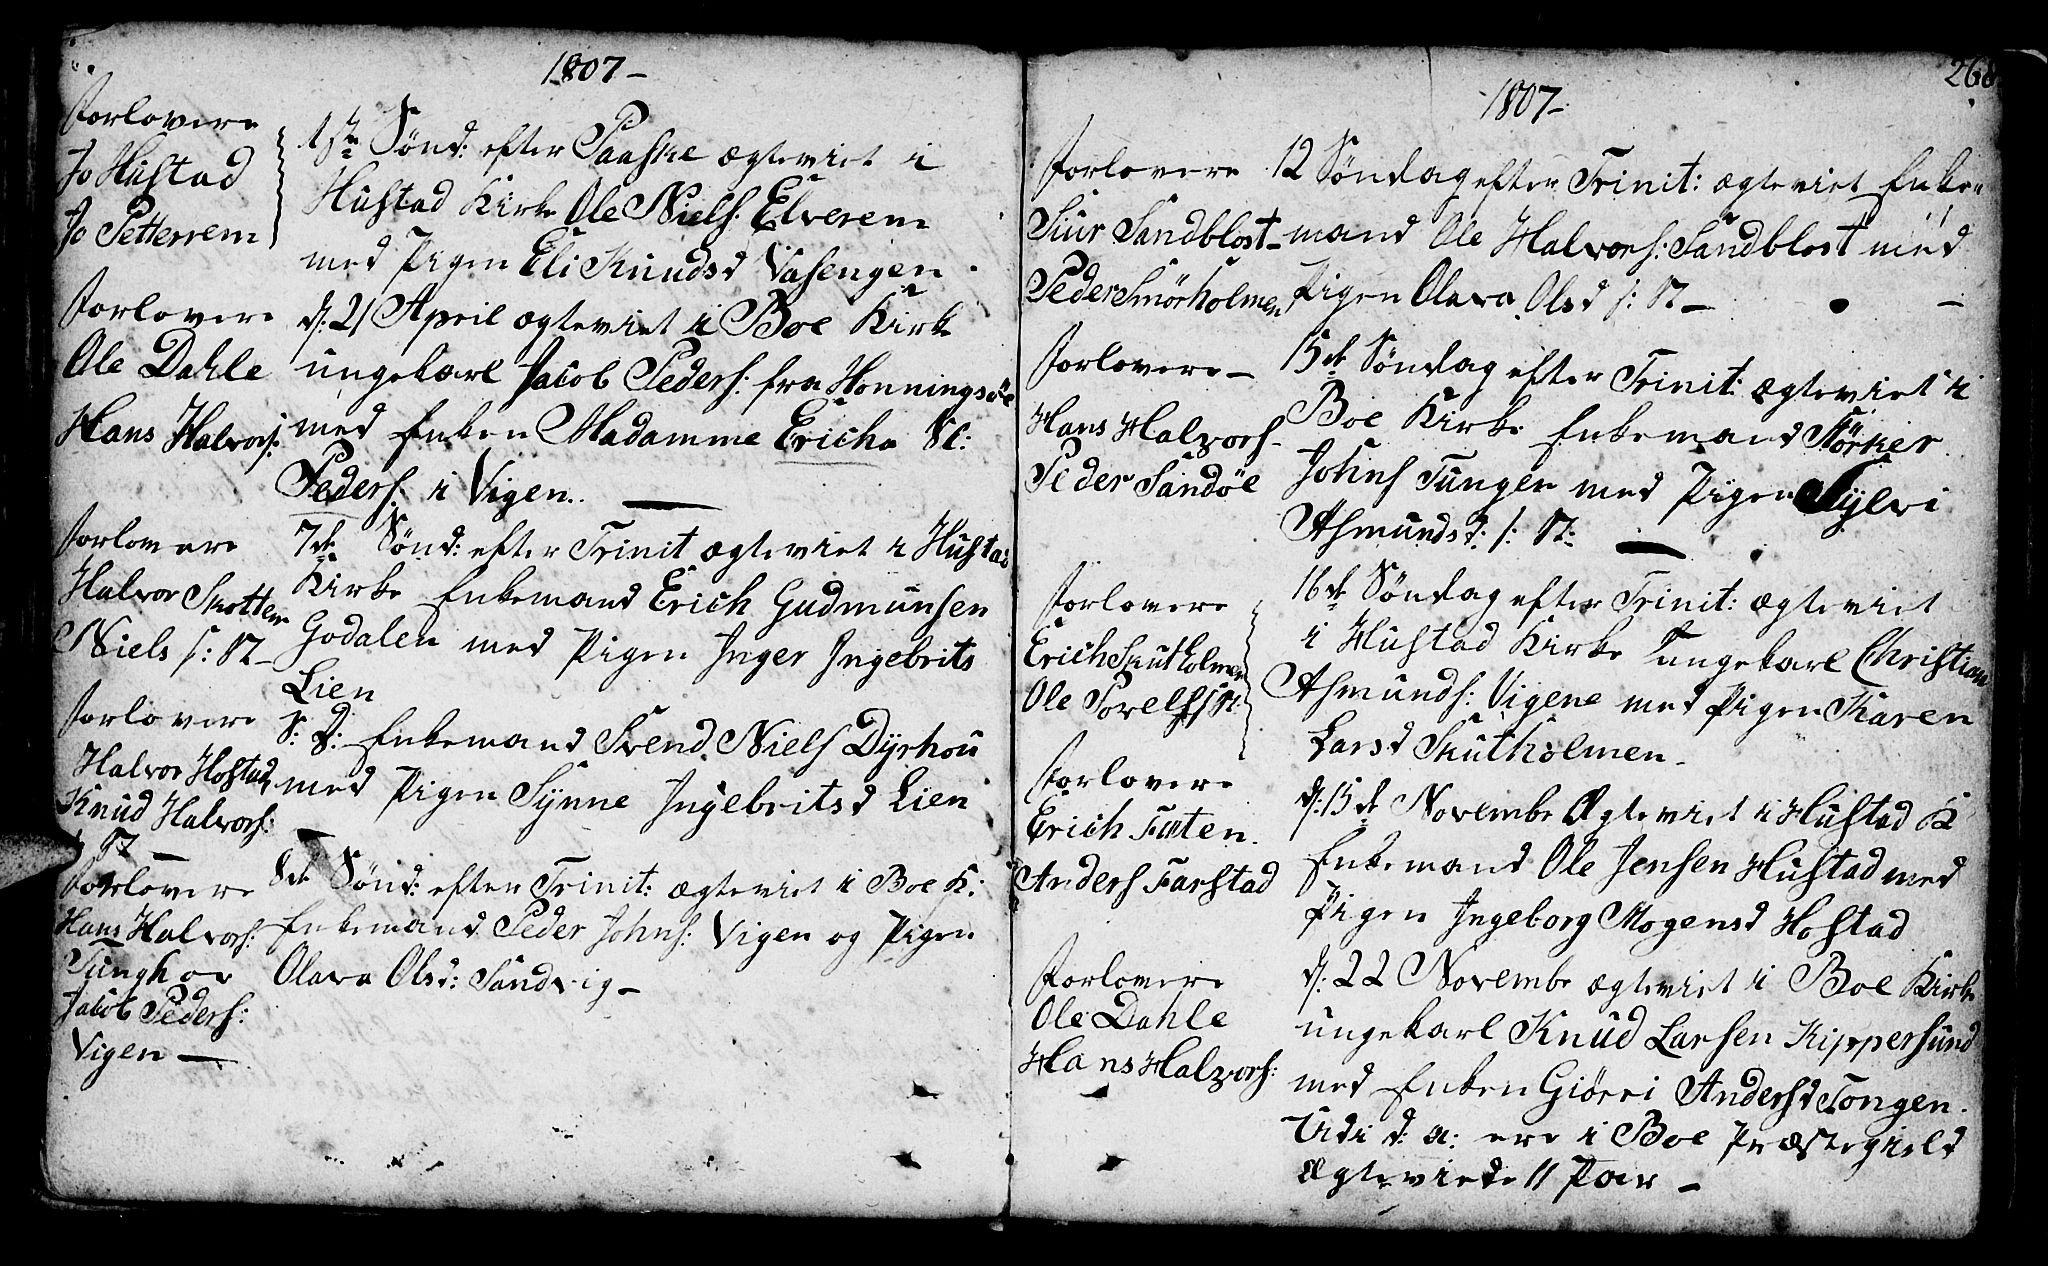 1807 –
Forlovere
Jo Hustad
Jo Petterrem
1ste Sönd: efter Paaske ægteviet i
Hustad Kirke Ole Niels: Elverem
med Pigen Eli Knudsd Vasengen.
Forlovere
Ole Dahle
Hans Halvors:
d: 21 April ægteviet i Boe Kirke
ungekarl Jacob Peders: fra Honningsöe
med Enken Madamme Ericha Sl:
Peders: i Vigen. –
Forlovere
Halvor Skotten
Niels s: St –
7de Sönd: efter Trinit ægteviet i Hustad
Kirke Enkemand Erich Gudmunsen
Godalen med Pigen Inger Ingebrits
Lien
Forlovere
Halvor Hostad
Knud Halvors:
s: St –
S: D: Enkemand Svend Niels Dyrhou
med Pigen Synne Ingebritsd Lien
Forlovere
Hans Halvors:
Tunghor
Jacob Peders:
Vigen –
8de Sönd: efter Trinit: ægteviet i Boe K:
Enkemand Peder Johns: Vigen og Pigen
Olava Olsd: Sandvig –
268
1807 –
Forlovere
Siur Sandblost –
Peder Smörholmen
12 Söndag efter Trinit: ægteviet Enke=
mand Ole Halvors: Sandblost med
Pigen Olava Olsd s: St –
Forlovere –
Hans Halvors –
Peder Sandöe
15de Söndag efter Trinit: ægteviet i
Boe Kirke Enkemand Störker
Johns Tungen med Pigen Sylvi
Asmundsd: s: St: –
Forlovere
Erich Skutholmen
Ole Povels s: St:
16de Söndag efter Trinit: ægteviet
i Hustad Kirke Ungekarl Christian
Asmunds: Vigene med Pigen Karen
Larsd Skutholmen –
Forlovere
Erich Farten.
Anders Farstad
d: 15de Novembe Ægteviet i Hustad K
Enkemand Ole Jensen Hustad med
Pigen Ingeborg Mogensd Hostad
Forlovere
Ole Dahle
Hans Halvors:
d: 22 Novembe ægteviet i Boe Kirke
ungekarl Knud Larsen Kippersund
med Enken Giörri Andersd Tongen.
Udi d: a: ere i Boe Præstegield
Ægteviede 11 Par –